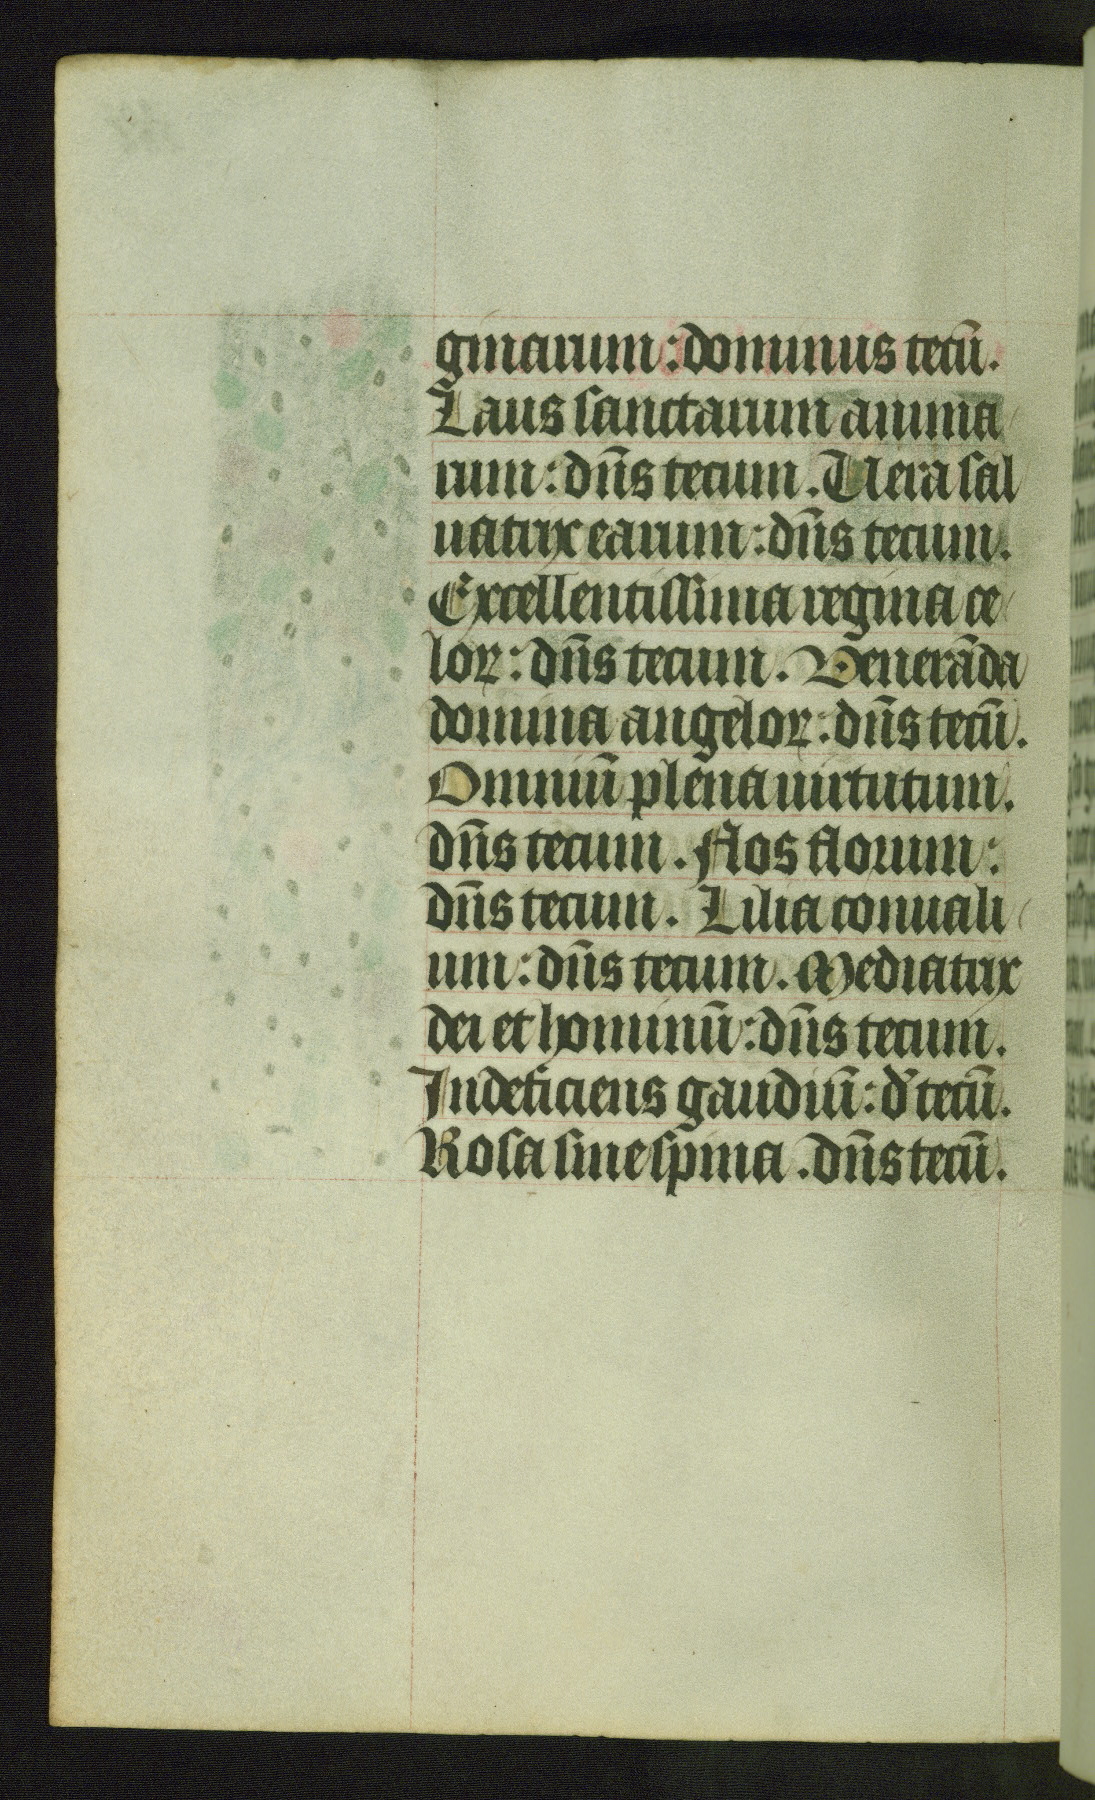 ginarum : dominus tecū.
Laus sanctarum anima
rum : dn̄s tecum. Uera sal
uatrix earum : dn̄s tecum.
Excellentissima regina ce
loꝝ : dn̄s tecum. Venerāda
domina angeloꝝ : dn̄s tecū.
Omniū plena uirtutum.
dn̄s tecum. Flos florum :
dn̄s tecum. Lilia conuali
um : dn̄s tecum. Mediatrix
dei et hominū : dn̄s tecum.
Indeficiens gaudiū : d̄ tecū.
Rosa sine spina . dn̄s tecū.